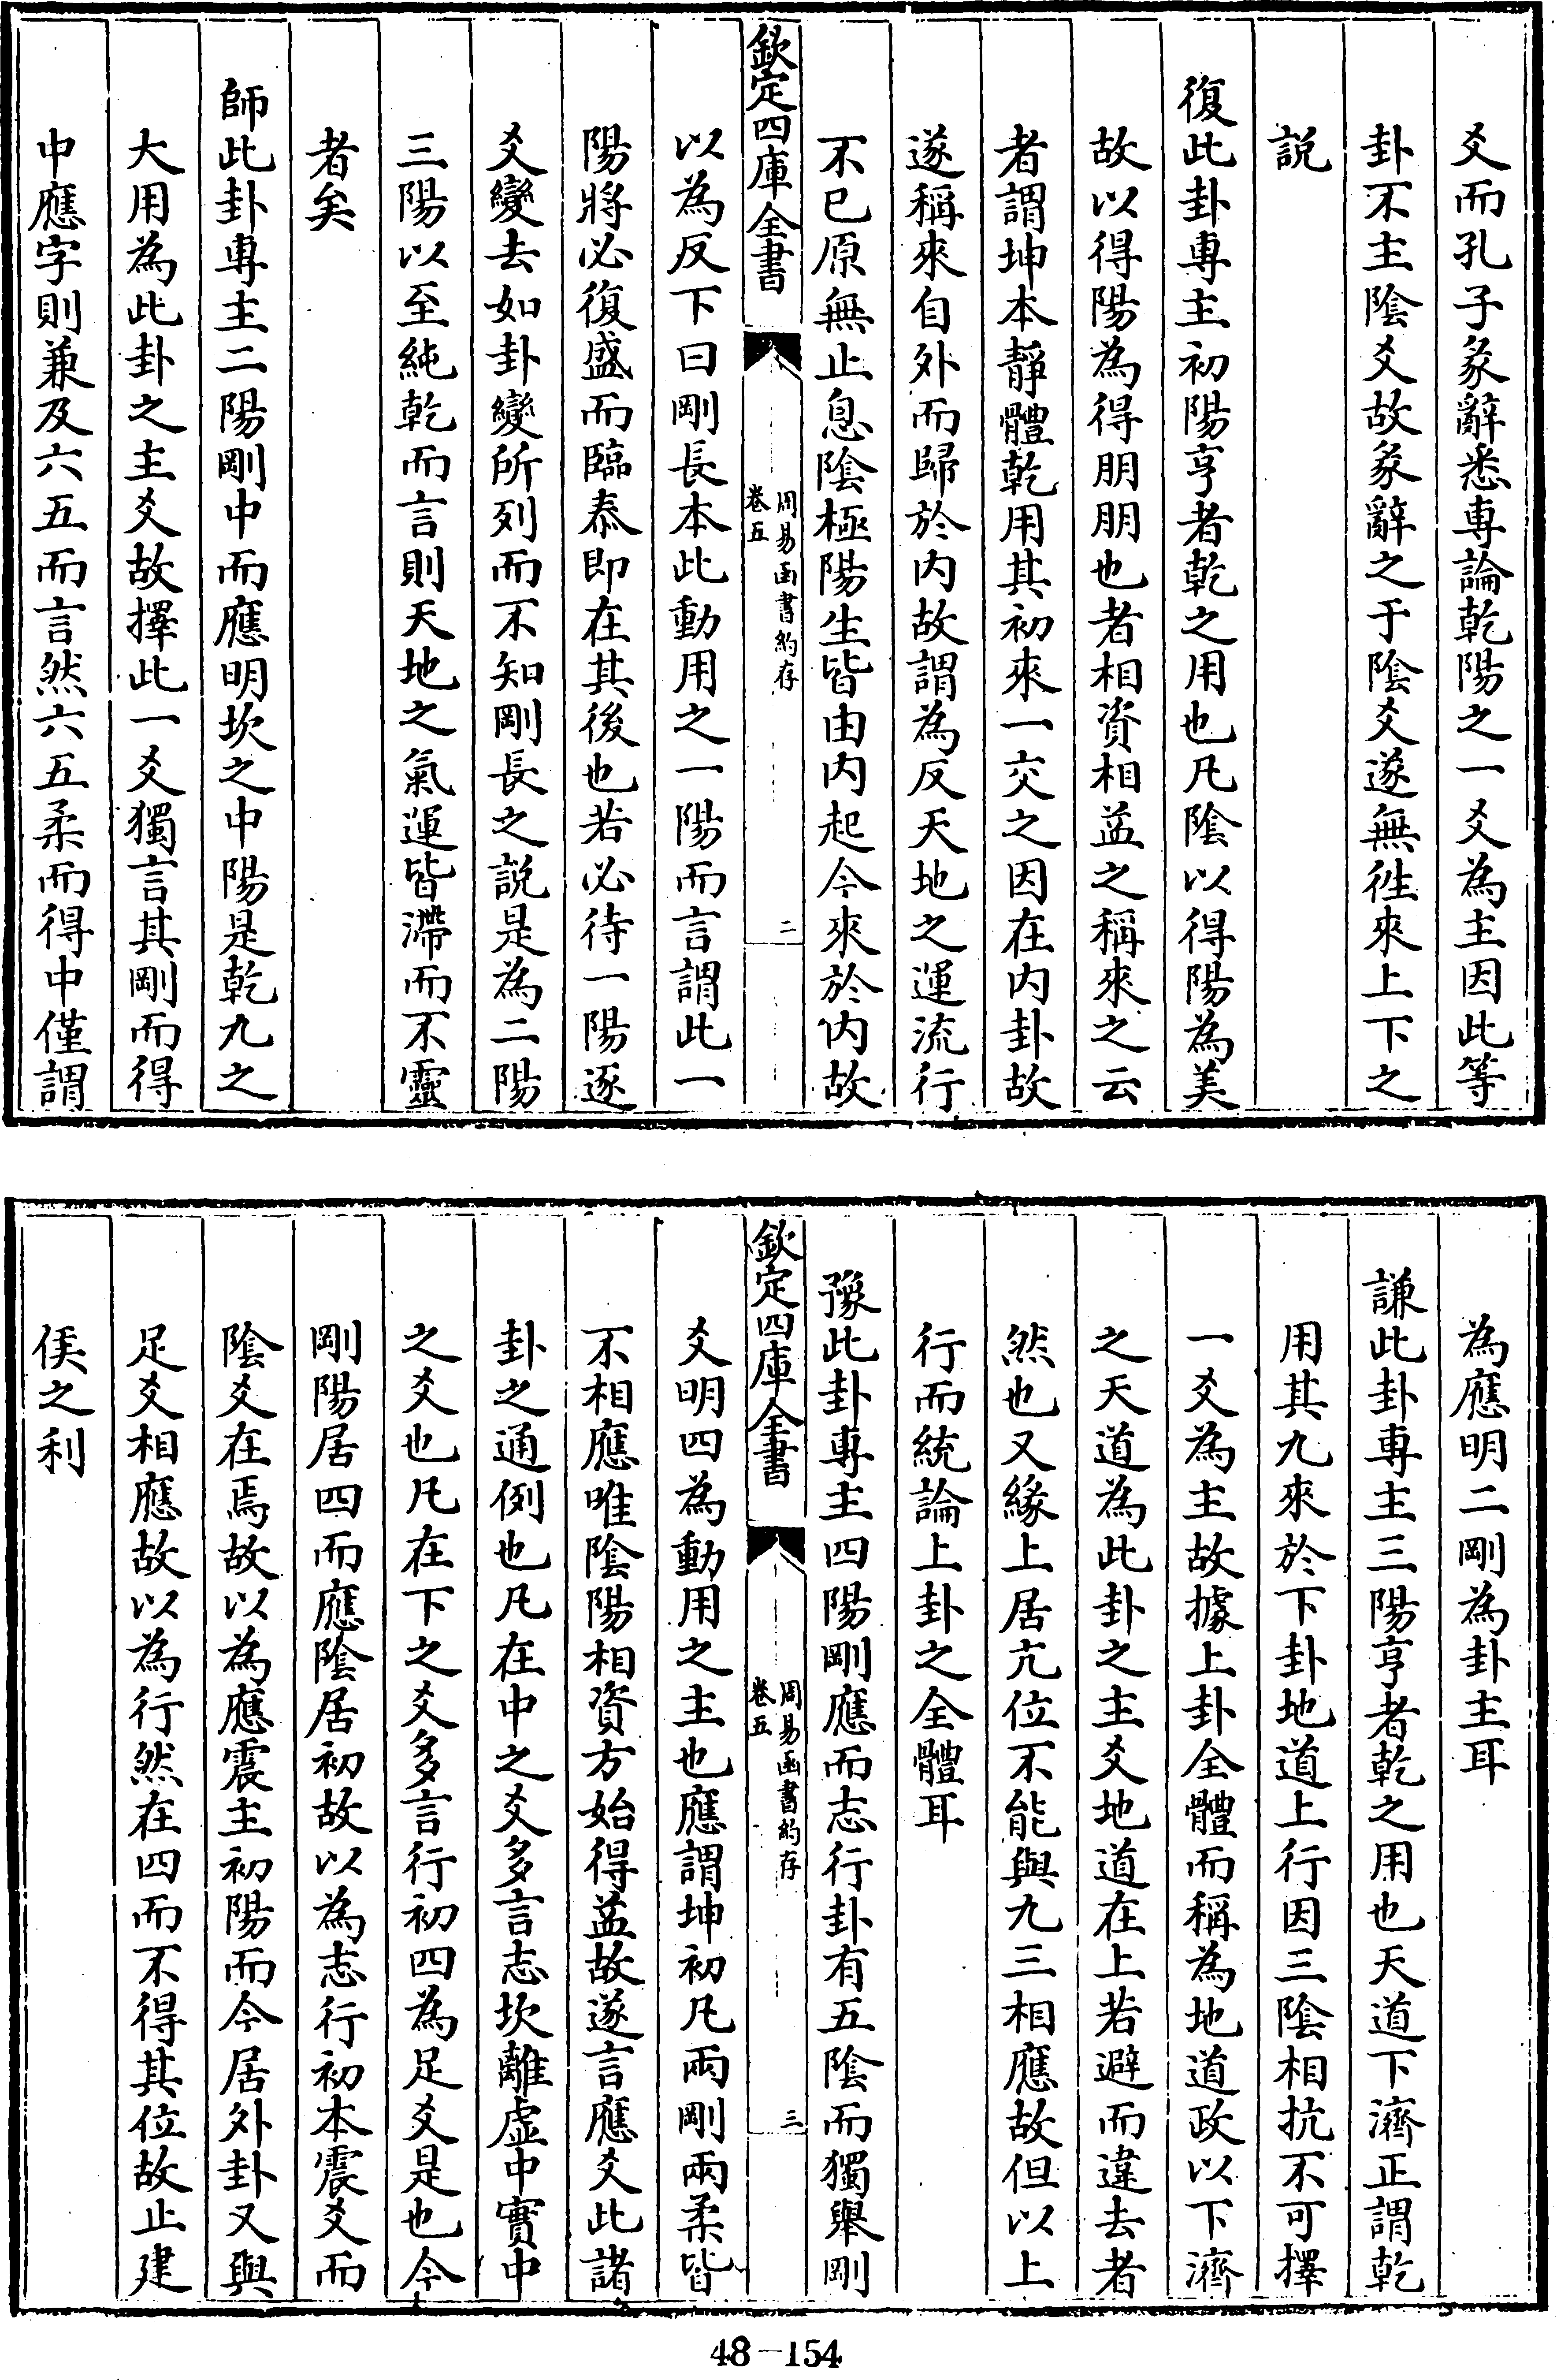 爻而孔子彖辭悉專論乾陽之一爻為主因此等
卦不主陰爻故彖辭之于陰爻遂無徃來上下之
説
復此卦專主初陽亨者乾之用也凡陰以得陽為美
故以得陽為得朋朋也者相資相益之稱來之云
者謂坤本靜體乾用其初來一交之因在内卦故
遂稱來自外而歸於内故謂為反天地之運流行
不已原無止息陰極陽生皆由内起今來於内故
欽定四庫全書
周易函書約存
卷五
二
以為反下曰剛長本此動用之一陽而言謂此一
陽將必復盛而臨泰即在其後也若必待一陽逐
爻變去如卦變所列而不知剛長之説是為二陽
三陽以至純乾而言則天地之氣運皆滯而不靈
者矣
師此卦專主二陽剛中而應明坎之中陽是乾九之
大用為此卦之主爻故擇此一爻獨言其剛而得
中應字則兼及六五而言然六五柔而得中僅謂
為應明二剛為卦主耳
謙此卦專主三陽亨者乾之用也天道下濟正謂乾
用其九來於下卦地道上行因三陰相抗不可擇
一爻為主故據上卦全體而稱為地道政以下濟
之天道為此卦之主爻地道在上若避而違去者
然也又緣上居亢位不能與九三相應故但以上
行而統論上卦之全體耳
豫此卦專主四陽剛應而志行卦有五陰而獨舉剛
欽定四庫全書
周易函書約存
卷五
三
爻明四為動用之主也應謂坤初凡兩剛兩柔皆
不相應唯陰陽相資方始得益故遂言應爻此諸
卦之通例也凡在中之爻多言志坎離虛中實中
之爻也凡在下之爻多言行初四為足爻是也今
剛陽居四而應陰居初故以為志行初本震爻而
陰爻在焉故以為應震主初陽而今居外卦又與
足爻相應故以為行然在四而不得其位故止建
侯之利
48-154